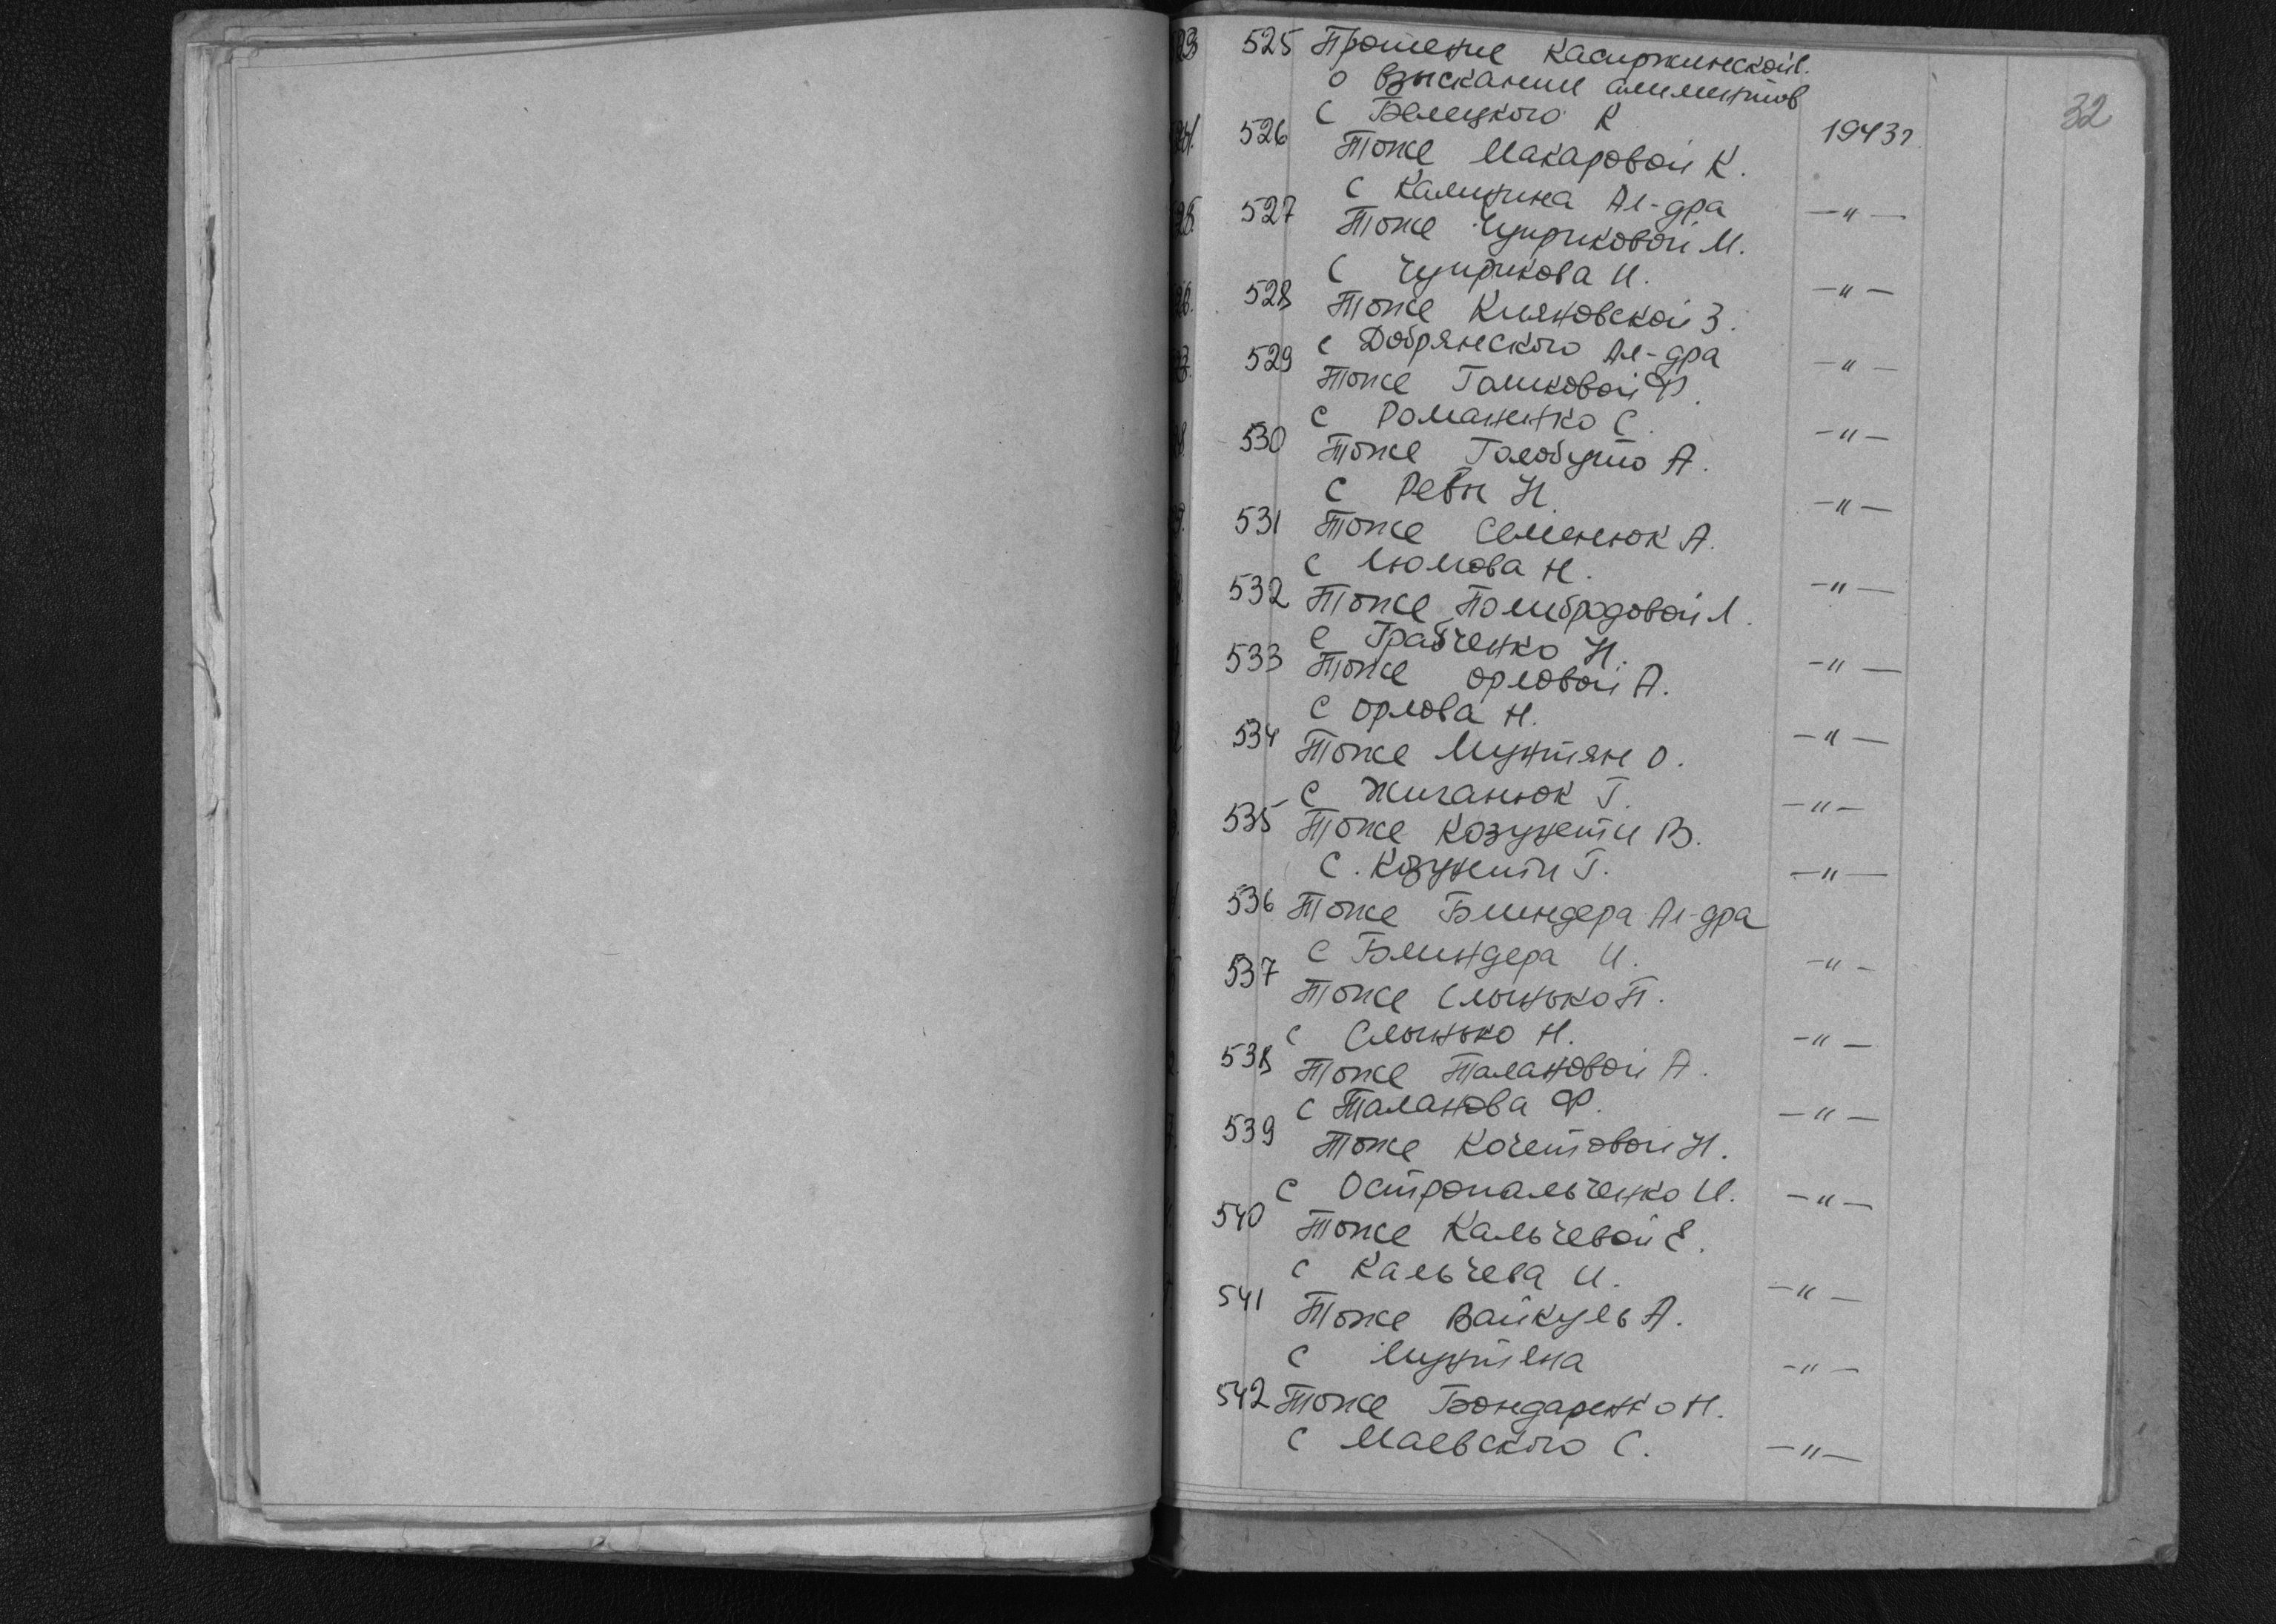 32
525 Прошение Касиржинской
о взыскании алиментов
с Белецкого К 1943г.
526 Тоже Макаровой К.
с Калинина Ал-дра —"—
527 Тоже Чуприковой М.
с Чуприкова И. —"—
528 Тоже Кияновской З.
с Добрянского Ал-дра —"—
529 Тоже Гашковой Ф.
с Романенко С. —"—
530 Тоже Голобутто А.
с Ревы Н. —"—
531 Тоже Семенюк А.
с Н. —"—
532 Тоже Л.
с Грабченко Н. —"—
533 Тоже Орловой А.
с Орлова Н. —"—
534 Тоже Мунтян О.
с Жиганюк Г. —"—
535 Тоже Козунети В.
с. Козунети Г. —"—
536 Тоже Блиндера Ал-дра
с Блиндера И. —"—
537 Тоже Слынько П.
с Слынько Н. —"—
538 Тоже Талановой А.
с Таланова Ф. —"—
539 Тоже Кочетовой Н.
с Остропальченко И. —"—
540 Тоже Кальчевой Е.
с Кальчева И. —"—
541 Тоже Вайкуль А.
с Мунтяна —"—
542 Тоже Бондаренко Н.
с Маевского С. —"—